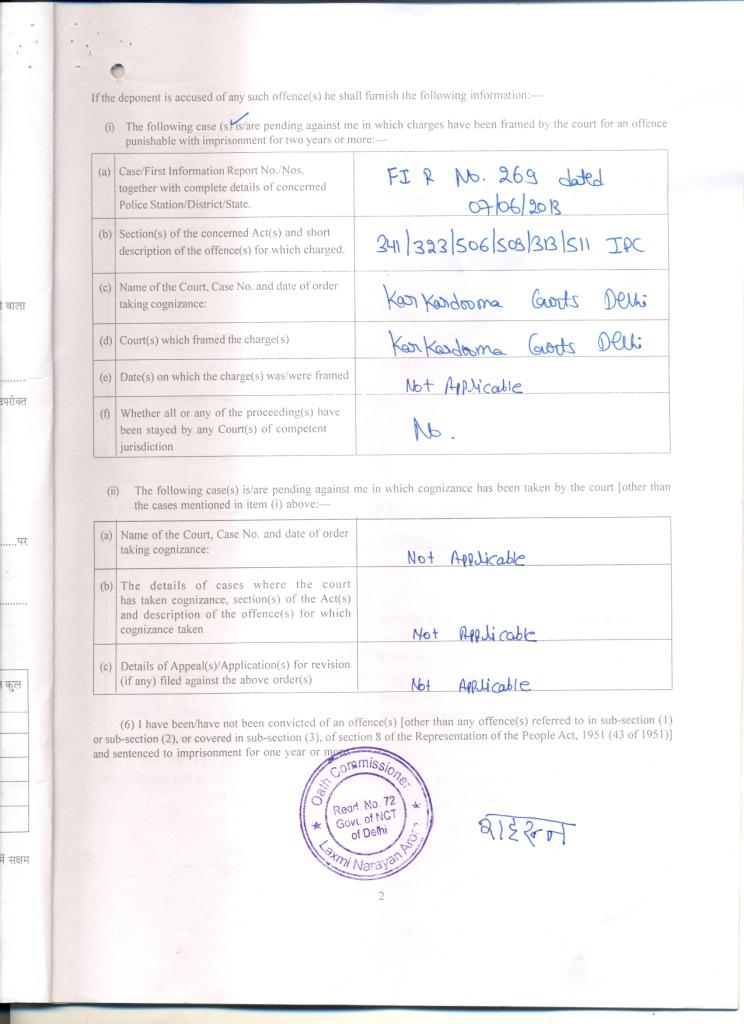 If the deponent is accused of any such offence(s) he shall furnish the following information:—
(i) The following case (s) is/are pending against me in which charges have been framed by the court for an offence
punishable with imprisonment for two years or more:—
(a) Case/First Information Report No./Nos.
together with complete details of concerned
Police Station/District/State.
FIR No. 269 dated
07/06/2013
(b) Section(s) of the concerned Act(s) and short
description of the offence(s) for which charged.
341/323/506/509/313/511 IPC
(c) Name of the Court, Case No. and date of order
taking cognizance:
KarKardooma Courts Delhi
(d) Court(s) which framed the charge(s)
KarKardooma Courts Delhi
(e) Date(s) on which the charge(s) was/were framed
Not Applicable
(f) Whether all or any of the proceeding(s) have
been stayed by any Court(s) of competent
jurisdiction
No.
(ii) The following case(s) is/are pending against me in which cognizance has been taken by the court [other than
the cases mentioned in item (i) above:—
(a) Name of the Court, Case No. and date of order
taking cognizance:
Not Applicable
(b) The details of cases where the court
has taken cognizance, section(s) of the Act(s)
and description of the offence(s) for which
cognizance taken
Not Applicable
(c) Details of Appeal(s)/Application(s) for revision
(if any) filed against the above order(s)
Not Applicable
(6) I have been/have not been convicted of an offence(s) [other than any offence(s) referred to in sub-section (1)
or sub-section (2), or covered in sub-section (3), of section 8 of the Representation of the People Act, 1951 (43 of 1951)]
and sentenced to imprisonment for one year or more
Oath Commissioner
Read. No. 72
Govt. of NCT
of Delhi
Laxmi Narayan
2
वाला
उपरोक्त
......पर
कुल
में सक्षम